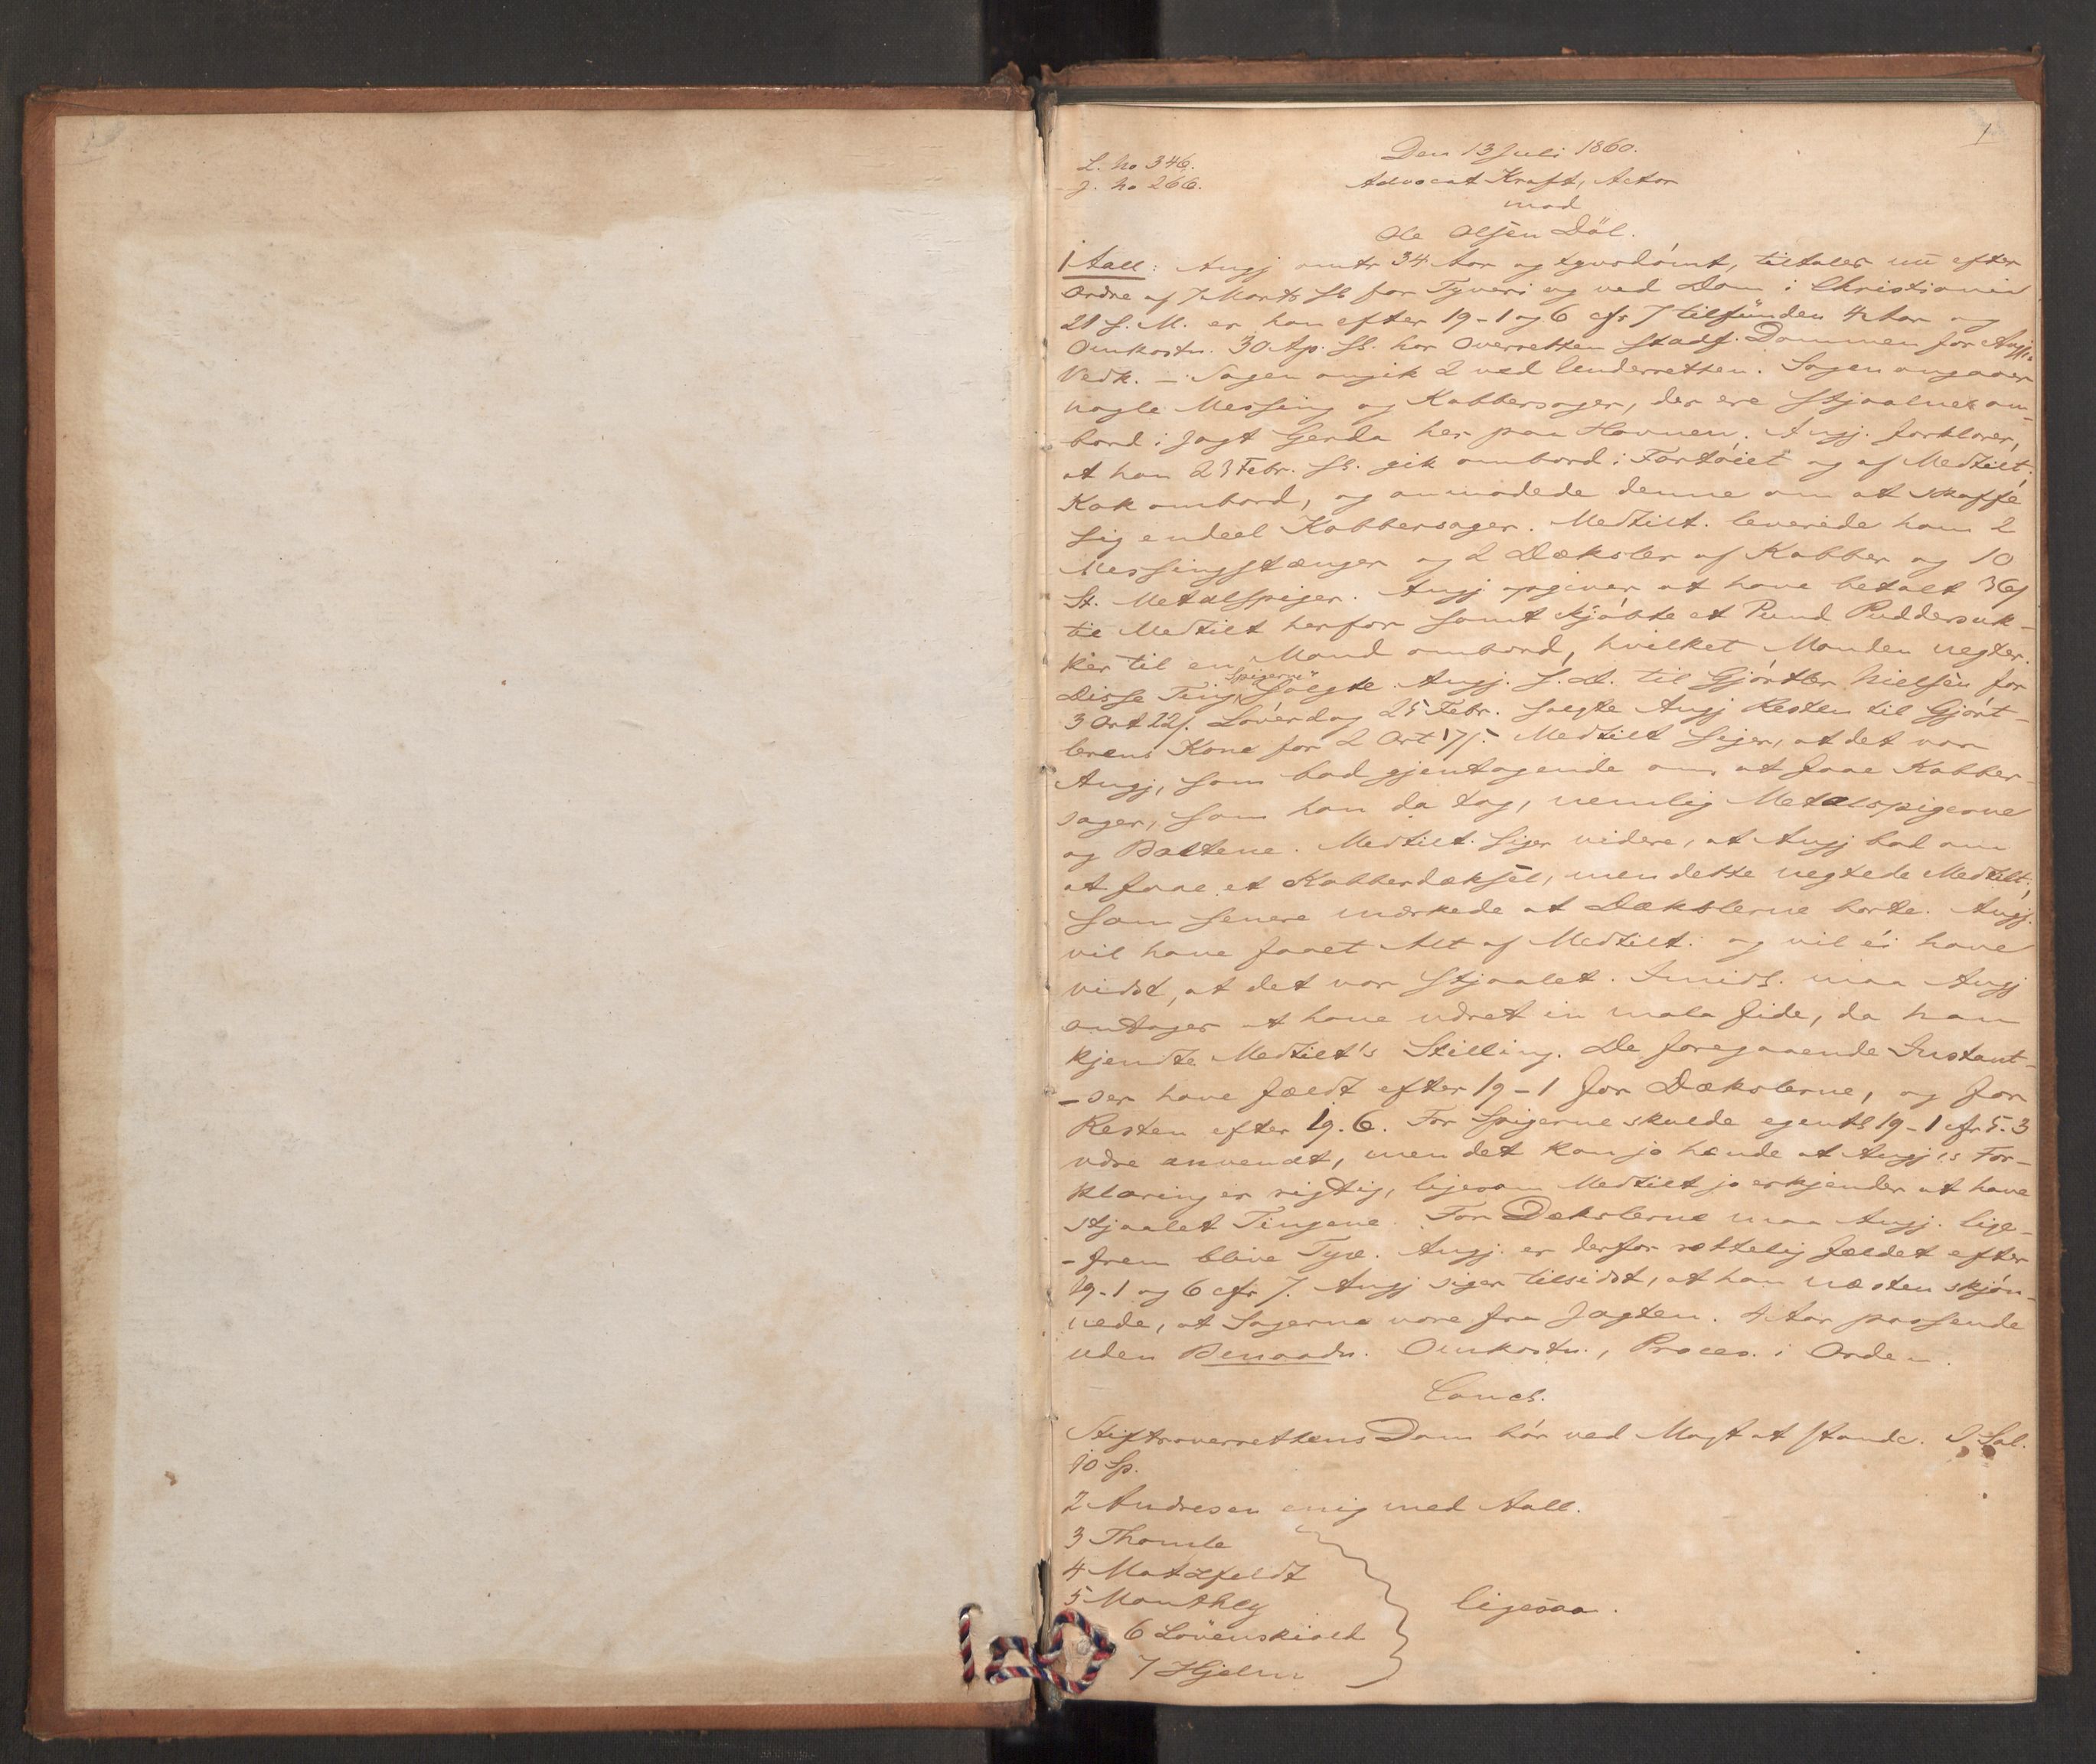 1
Den 13 Juli 1860.
L. No 346.
J. No 266.
Advocat Kraft, Actor
mod
Ole Olsen Döl.
1 Aall: Angj omtr 34 Aar og tyvsdömt, tiltales nu efter
Ordre af 7 Marts ds for Tyveri og ved Dom i Christiania
21 s. M. er han efter 19-1 og 6 cfr 7 tilfunden 4 Aar og
Omkostn. 30 Ap. ds. har Overretten stadf. Dommen for Angj's
Vedk. – Sagen angik 2 ved Underretten. Sagen angaaer
nogle Messing og Kobbersager, der ere stjaalne om-
bord i Jagt Gerda her paa Havnen. Angj. forklarer,
at han 23 Febr. ds. gik ombord i Fartöiet og af Medtilt.,
Kok ombord, og anmodede denne om at skaffe
sig endeel Kobbersager. Medtilt. leverede ham 2
Messingstænger og 2 Dæksler af Kobber og 10
St. Metalspiger. Angj opgiver at have betalt 36 s
til Medtilt herfor samt kjöbte et Pund Puddersuk-
ker til en Mand ombord, hvilket Manden negter.
Disse Ting, Spigerne, solgte Angj. s. D. til Gjörtler Nielsen for
3 Ort 22 s. Löverdag 25 Febr. solgte Angj Resten til Gjört-
lerens Kone for 2 Ort 17 s. Medtilt siger, at det var
Angj, som bad gjentagende om at faae Kobber-
sager, som han da tog, nemlig Metalspigerne
og Boltene. Medtilt. siger videre, at Angj bad om
at faae et Kobberdæksel, men dette negtede Medtilt.,
som senere mærkede at Dækslerne borte. Angj.
vil have faaet Alt af Medtilt. og vil ei have
vidst, at det var stjaalet. Imids. maa Angj
antages at have været in mala fide, da han
kjendte Medtilt's Stilling. De foregaaende Instant-
-ser have fældt efter 19-1 for Dækslerne, og for
Resten efter 19.6. For Spigerne skulde egentl 19-1 cfr 5.3
være anvendt, men det kan jo hænde at Angj's For-
klaring er rigtig, ligesom Medtilt jo erkjender at have
stjaalet Tingene. For Dækslerne maa Angj. lige-
-frem blive Tyv. Angj. er derfor rettelig fældet efter
19-1 og 6 cfr 7. Angj siger tilsidst, at han næsten skjön-
nede, at Sagerne vare fra Jagten. 4 Aar passende
uden Benaadn. Omkostn., Proces. i Orden.
Concl.
Stiftsoverrettens Dom bör ved Magt at stande. I Sal.
10 Sp.
2 Andresen enig med Aall.
3 Thomle
4 Motzfeldt
5 Manthey
6 Lövenskiold
7 Hjelm
ligesaa.